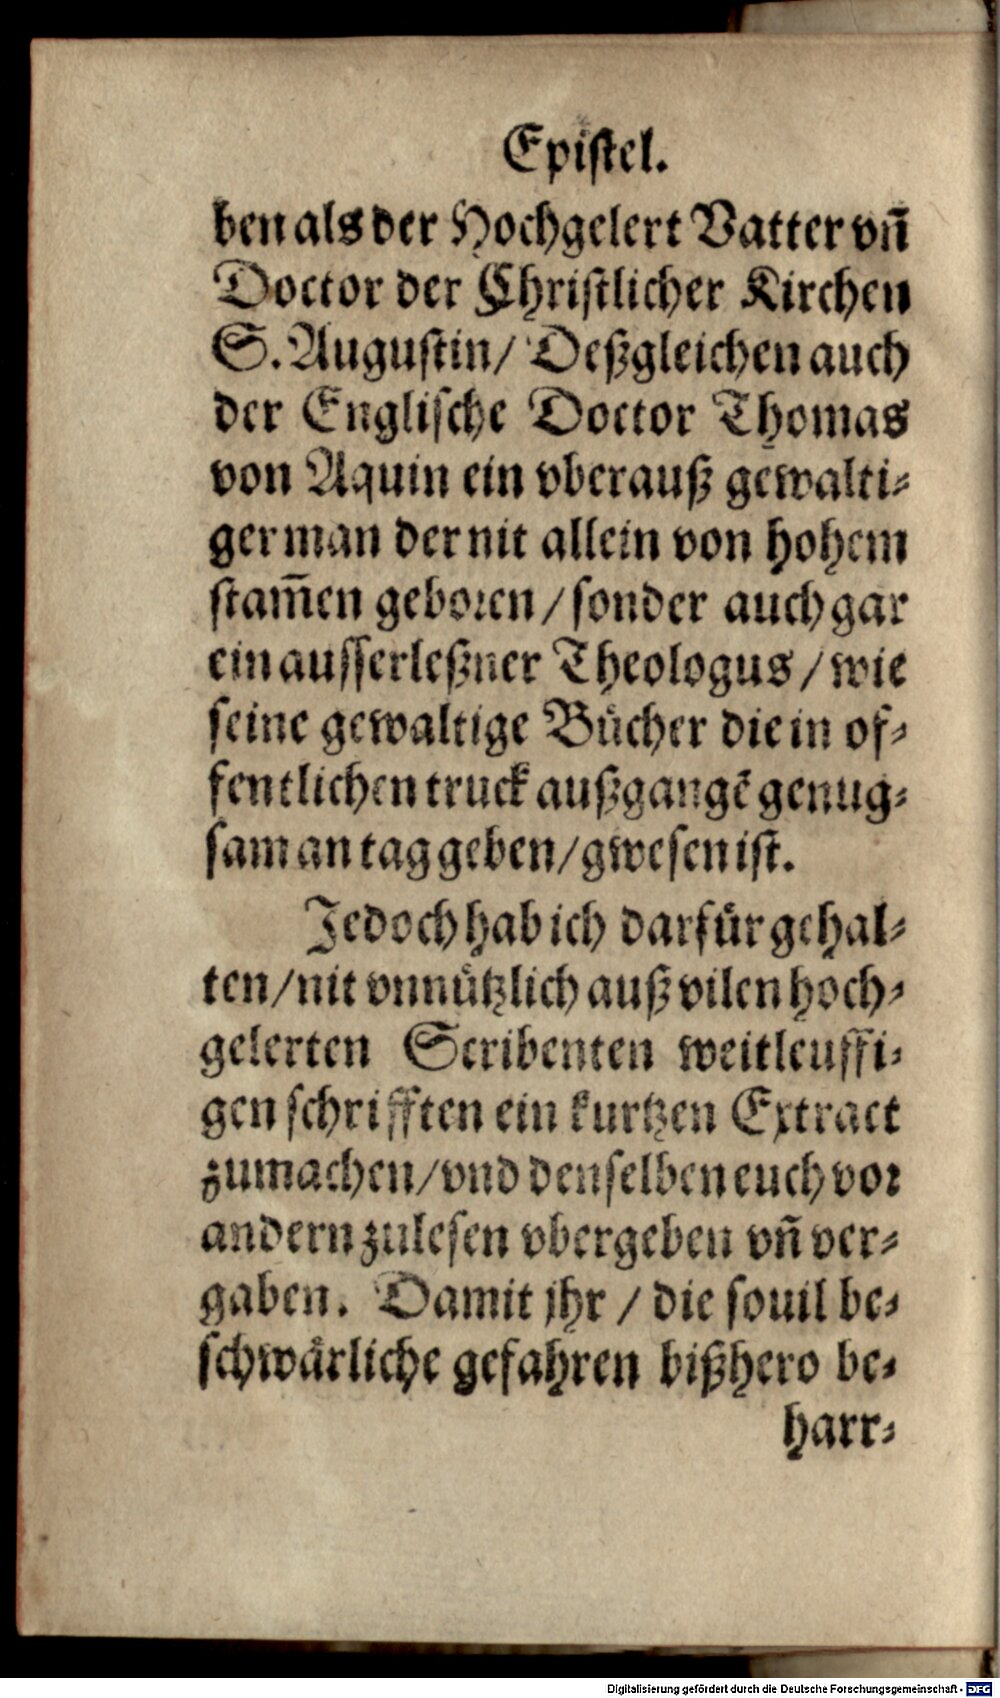 Epistel.
ben als der Hochgelert Vatter vñ
Doctor der Christlicher Kirchen
S. Augustin/ Deßgleichen auch
der Englische Doctor Thomas
von Aquin ein vberauß gewalti-
ger man der nit allein von hohem
stam̃en geboren/ sonder auch gar
ein ausserleßner Theologus/ wie
seine gewaltige Bücher die in of-
fentlichen truck außgangẽ genug-
sam an tag geben/ gwesen ist.
Jedoch hab ich darfür gehal-
ten/ nit vnnützlich auß vilen hoch-
gelerten Scribenten weitleuffi-
gen schrifften ein kurtzen Extract
zumachen/ vnd denselben euch vor
andern zulesen vbergeben vñ ver-
gaben. Damit jhr/ die souil be-
schwärliche gefahren bißhero be-
harr-
Digitalisierung gefördert durch die Deutsche Forschungsgemeinschaft - DFG